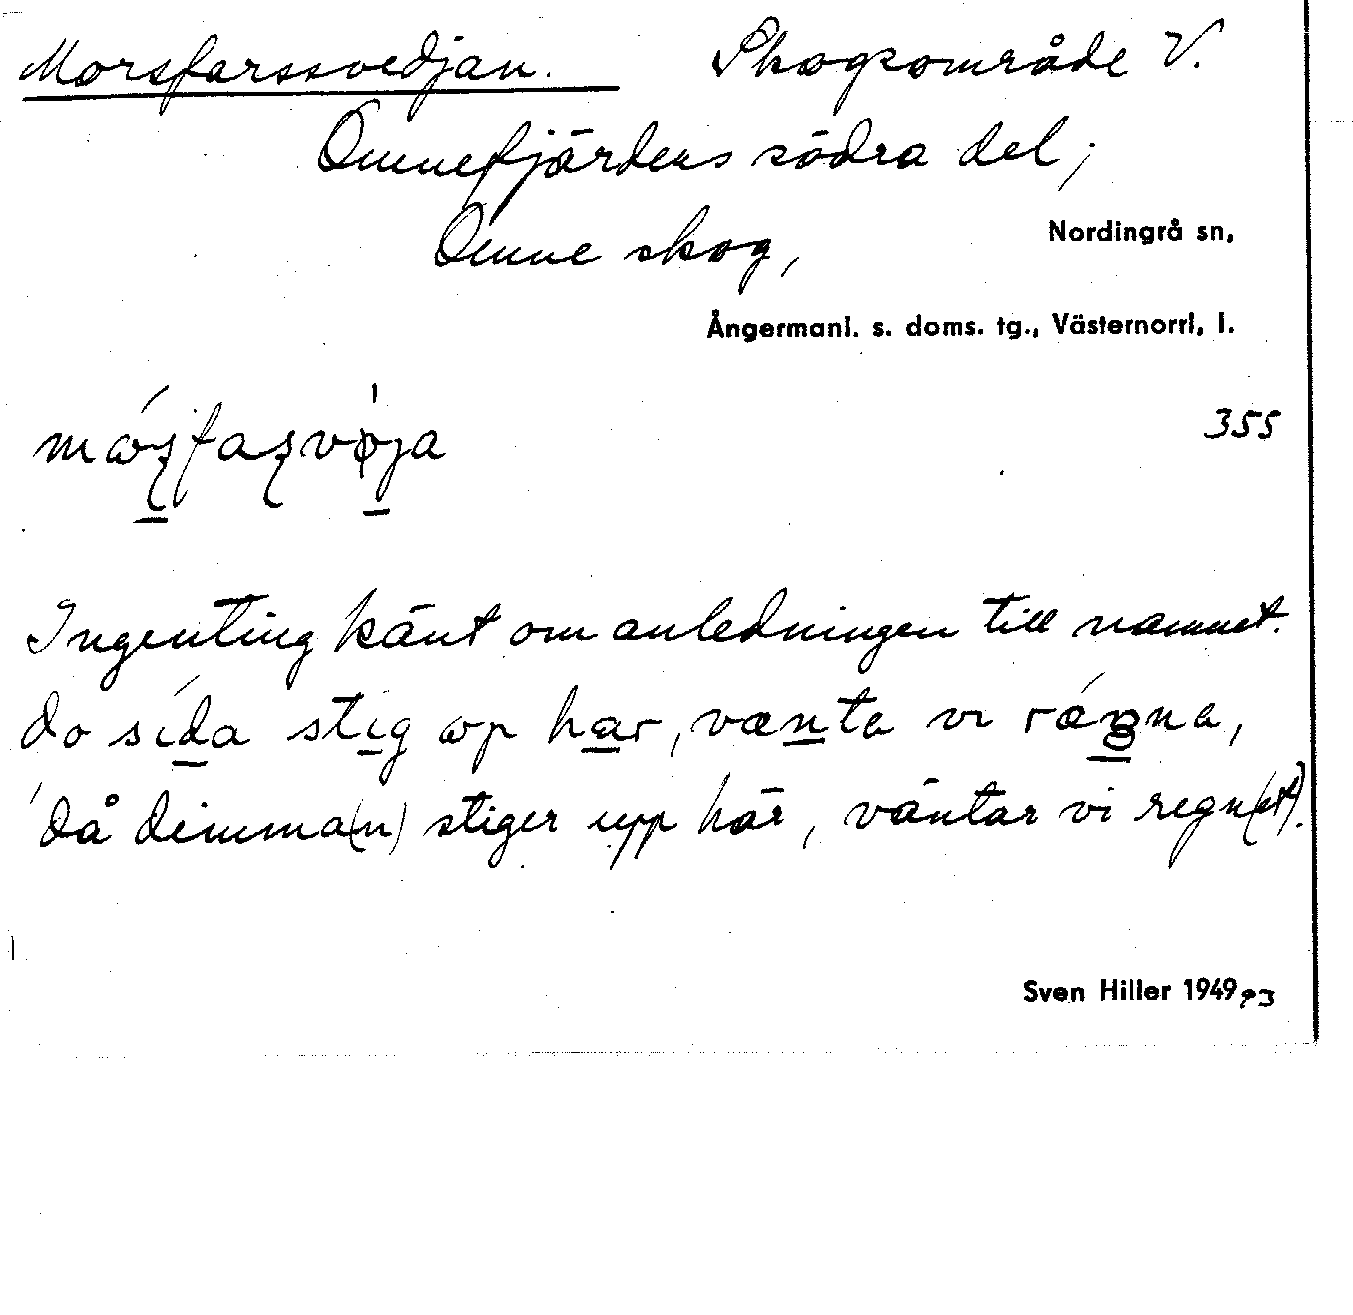 Morsfarssvedjan. Skogsområde V.
Omnefjärdens södra del;
Omne skog,
Nordingrå sn,
Ångermanl. s. doms. tg., Västernorrl. l.
355
Ingenting känt om anledningen till namnet.
do sída stig op har, vænta vi rægna,
'då dimma(n) stiger upp här, väntar vi regn(et).
Sven Hiller 1949